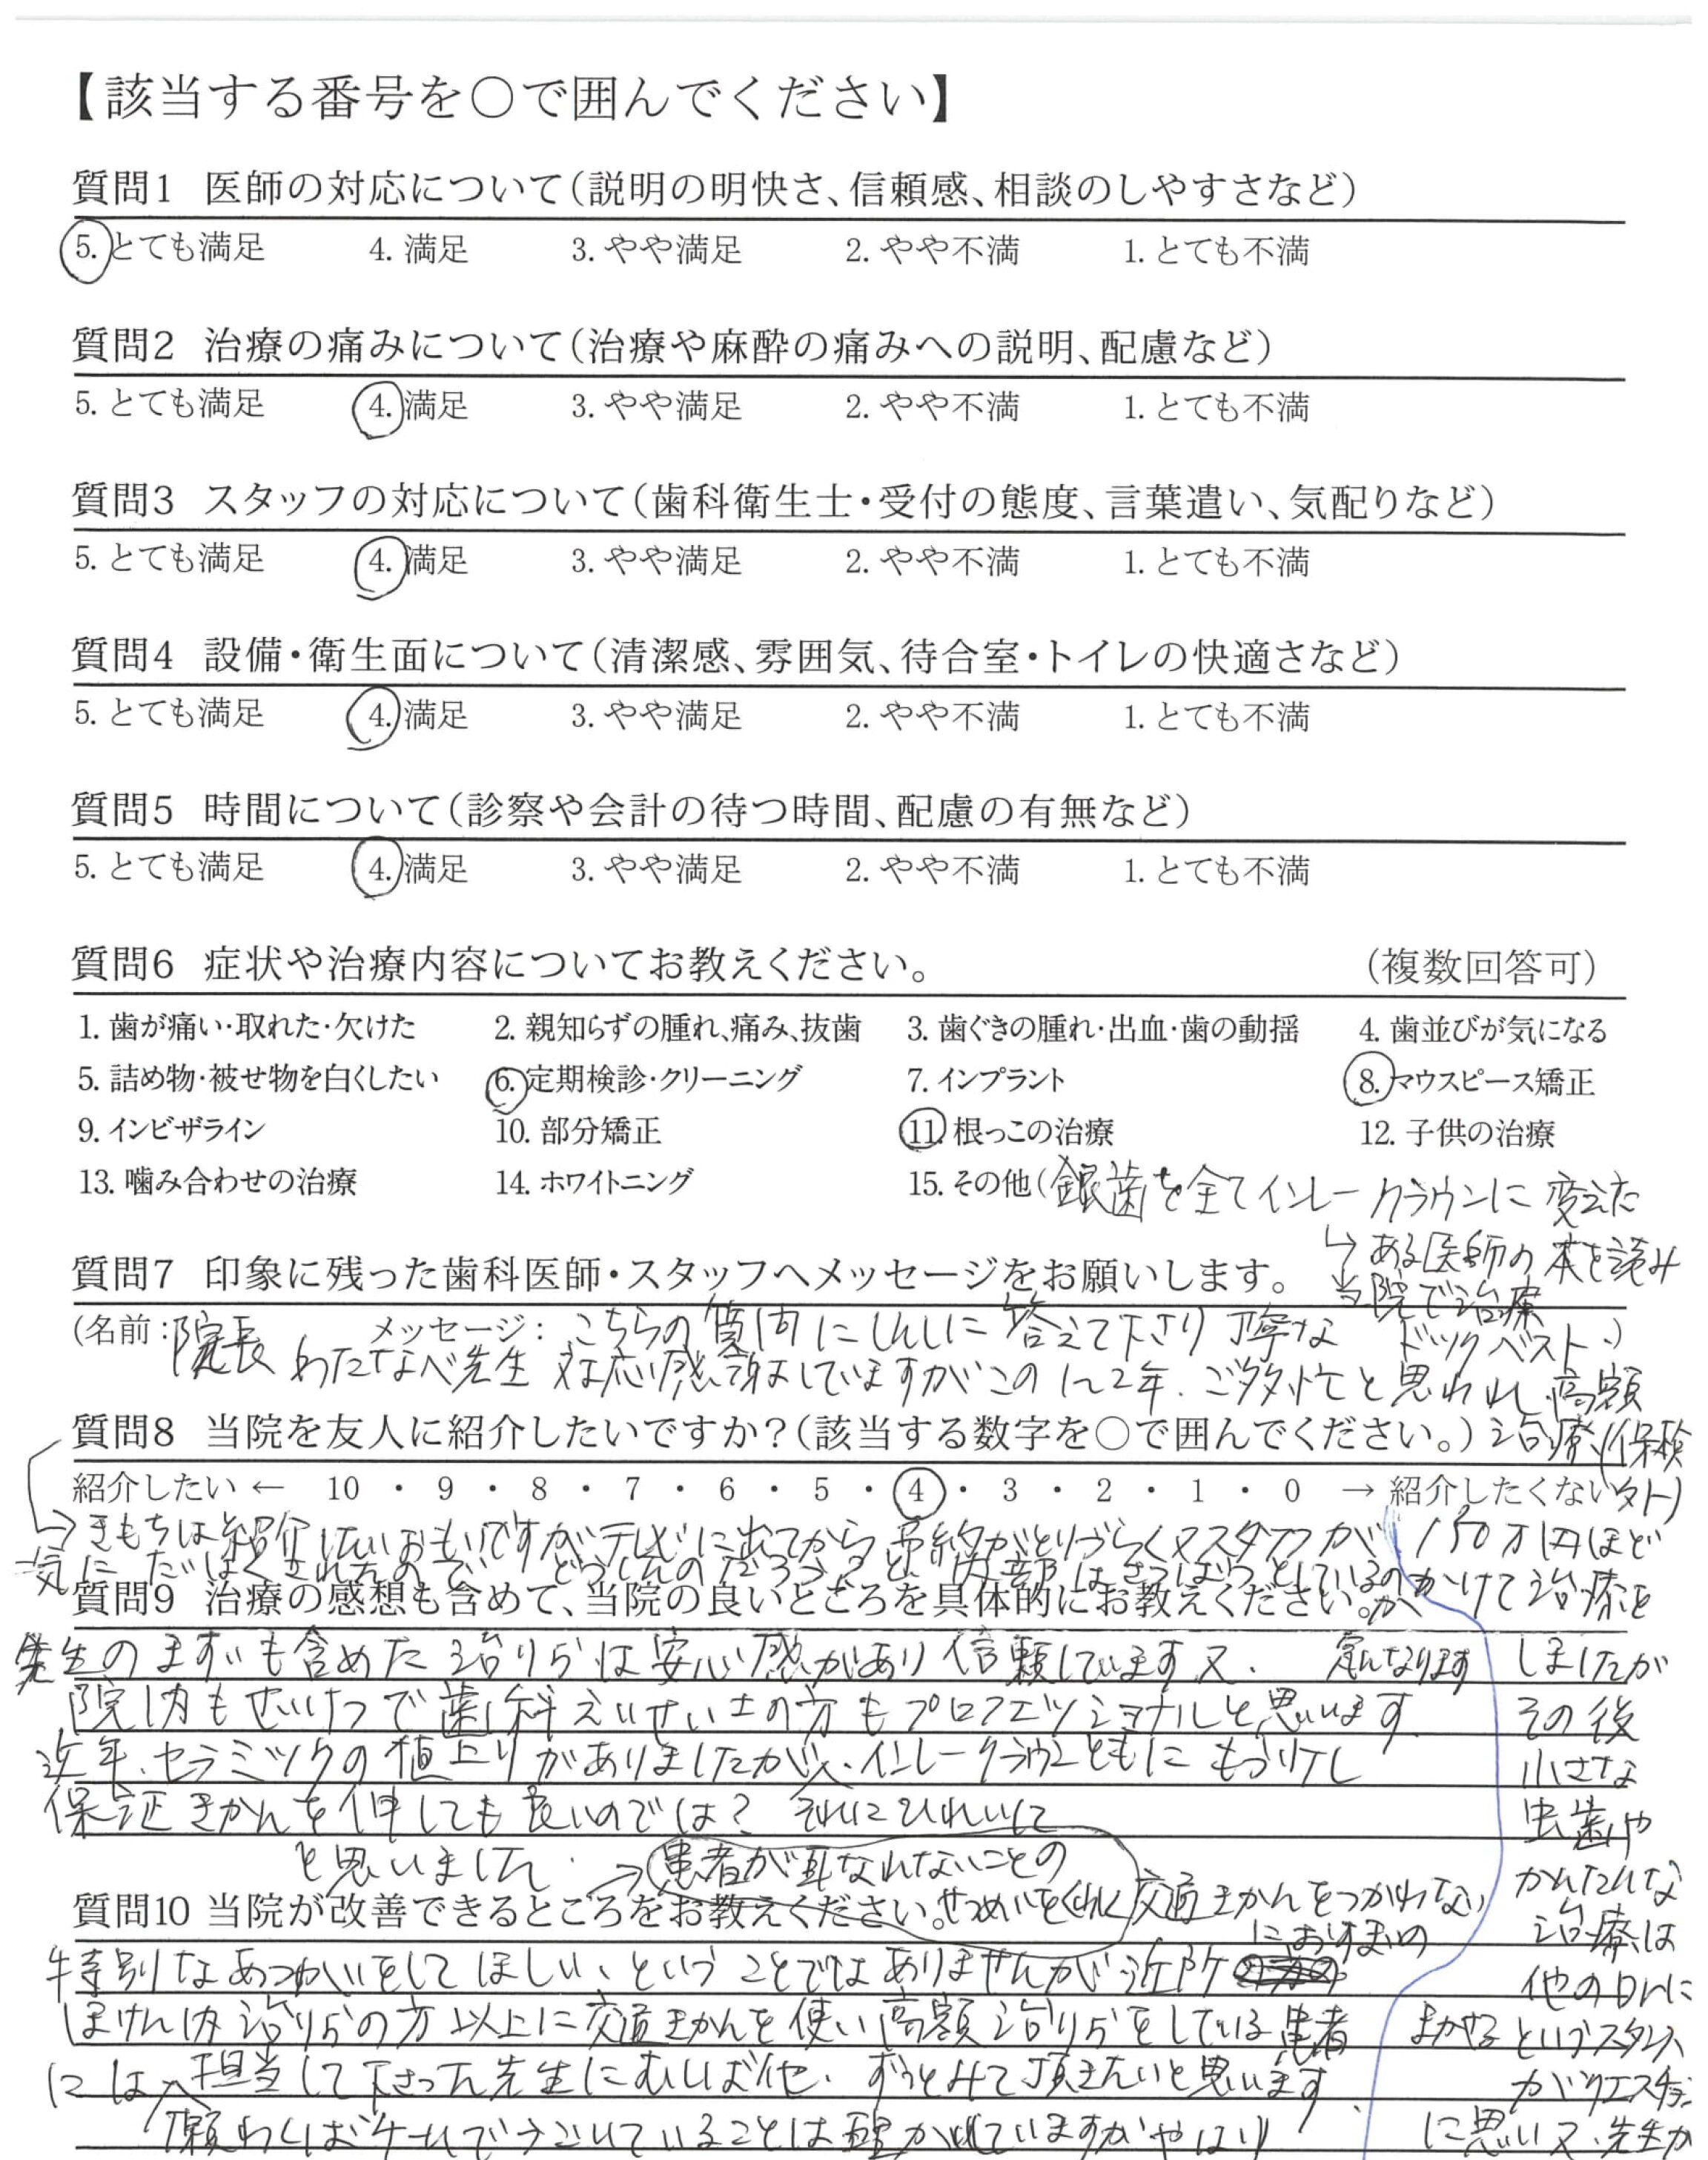 【該当する番号を○で囲んでください】
質問1 医師の対応について(説明の明快さ、信頼感、相談のしやすさなど)
5. とても満足 4. 満足 3. やや満足 2. やや不満 1. とても不満
質問2 治療の痛みについて(治療や麻酔の痛みへの説明、配慮など)
5. とても満足 4. 満足 3. やや満足 2. やや不満 1. とても不満
質問3 スタッフの対応について(歯科衛生士・受付の態度、言葉遣い、気配りなど)
5. とても満足 4. 満足 3. やや満足 2. やや不満 1. とても不満
質問4 設備・衛生面について(清潔感、雰囲気、待合室・トイレの快適さなど)
5. とても満足 4. 満足 3. やや満足 2. やや不満 1. とても不満
質問5 時間について(診察や会計の待つ時間、配慮の有無など)
5. とても満足 4. 満足 3. やや満足 2. やや不満 1. とても不満
質問6 症状や治療内容についてお教えください。 (複数回答可)
1. 歯が痛い・取れた・欠けた 2. 親知らずの腫れ、痛み、抜歯 3. 歯ぐきの腫れ・出血・歯の動揺 4. 歯並びが気になる
5. 詰め物・被せ物を白くしたい 6. 定期検診・クリーニング 7. インプラント 8. マウスピース矯正
9. インビザライン 10. 部分矯正 11. 根っこの治療 12. 子供の治療
13. 噛み合わせの治療 14. ホワイトニング 15. その他(銀歯を全てインレークラウンに変えた
→ある医師の本を読み
当院で治療
ドックベスト)
質問7 印象に残った歯科医師・スタッフへメッセージをお願いします。
(名前:院長 わたなべ先生 メッセージ: こちらの質問にしんしに答えて下さり丁寧な
対応感謝していますがこの1~2年、ご多忙と思われ、高額
治療(保険外)
150万円ほど
かけて治療を
しましたが
その後
小さな
虫歯や
かんたんな
治療は
他のDrに
まかせるというスタンス
がクエスチョン
に思い又、先生が
質問8 当院を友人に紹介したいですか?(該当する数字を○で囲んでください。)
紹介したい ← 10 ・ 9 ・ 8 ・ 7 ・ 6 ・ 5 ・ 4 ・ 3 ・ 2 ・ 1 ・ 0 → 紹介したくない
→きもちは紹介したいおもいですがテレビに出てから予約がとりづらく又スタッフが
一気に
質問9 治療の感想も含めて、当院の良いところを具体的にお教えください。
先生のますいも含めた治りょうは安心感があり信頼しています又、
院内もせいけつで歯科えいせい士の方もプロフェッショナルと思います
近年、セラミックの値上りがありましたが、インレークラウンともにもう少し
保証きかんを伸しても良いのでは? それにひれいして
と思いました。 →患者が耳なれないことの
せつめいをくわしく
質問10 当院が改善できるところをお教えください。
交通きかんをつかわない
特別なあつかいをしてほしい、ということではありませんが近所におすまいの
ほけん内治りょうの方以上に交通きかんを使い高額治りょうをしている患者
には担当して下さった先生に ずっとみて頂きたいと思います。
願わくば いることは かやはり